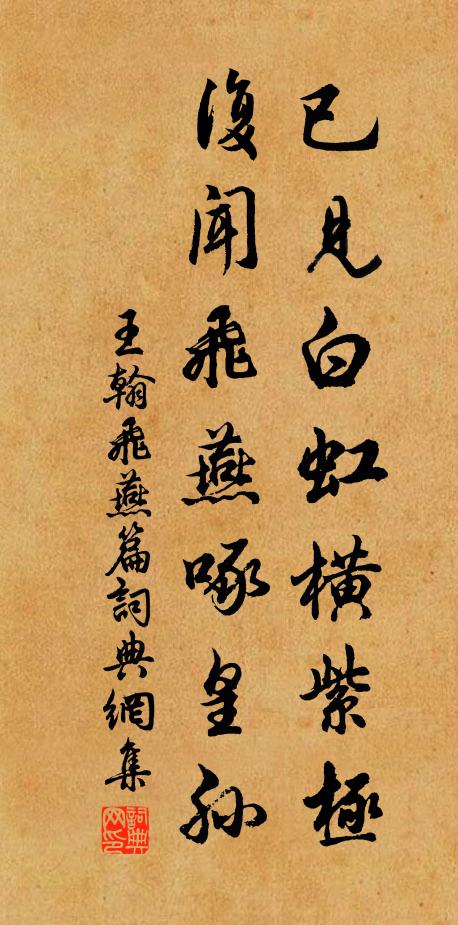 已見白虹橫紫極
復聞飛燕啄皇孫
王翰飛燕篇詞典網集
詞典网印